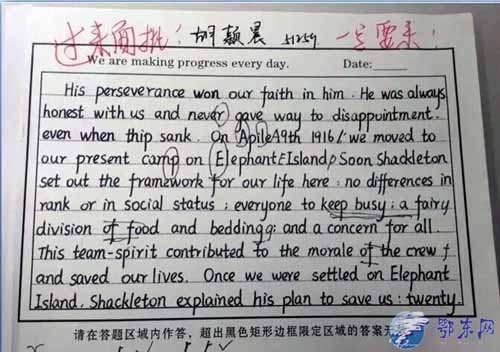 过来面批！ 胡颖晨 51259 一定要来！
We are making progress every day. Date:
His perseverance won our faith in him. He was always
honest with us and never gave way to disappointment.
even when thip sank. On Apile A9th 1916/. we moved to
our present camp on Elephant Island, Soon Shackleton
set out the framework for our life here: no differences in
rank or in social status; everyone to keep busy; a fairy
division of food and bedding; and a concern for all.
This team-spirit contributed to the morale of the crew
and saved our lives. Once we were settled on Elephant
Island, Shackleton explained his plan to save us: twenty
请在答题区域内作答，超出黑色矩形边框限定区域的答案无
鄂东网